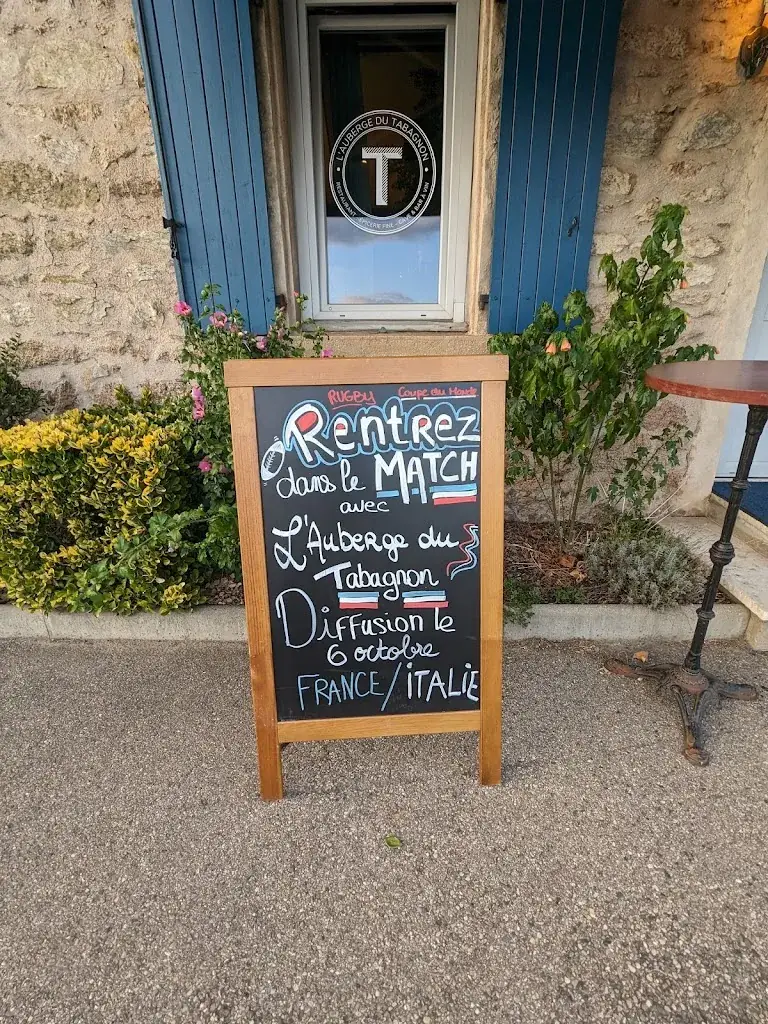 L'AUBERGE DU TABAGNON
T
RESTAURANT - EPICERIE FINE - CAVE & BAR À VIN
RUGBY Coupe du Monde
Rentrez
dans le MATCH
avec
L'Auberge du
Tabagnon
Diffusion le
6 octobre
FRANCE/ITALIE